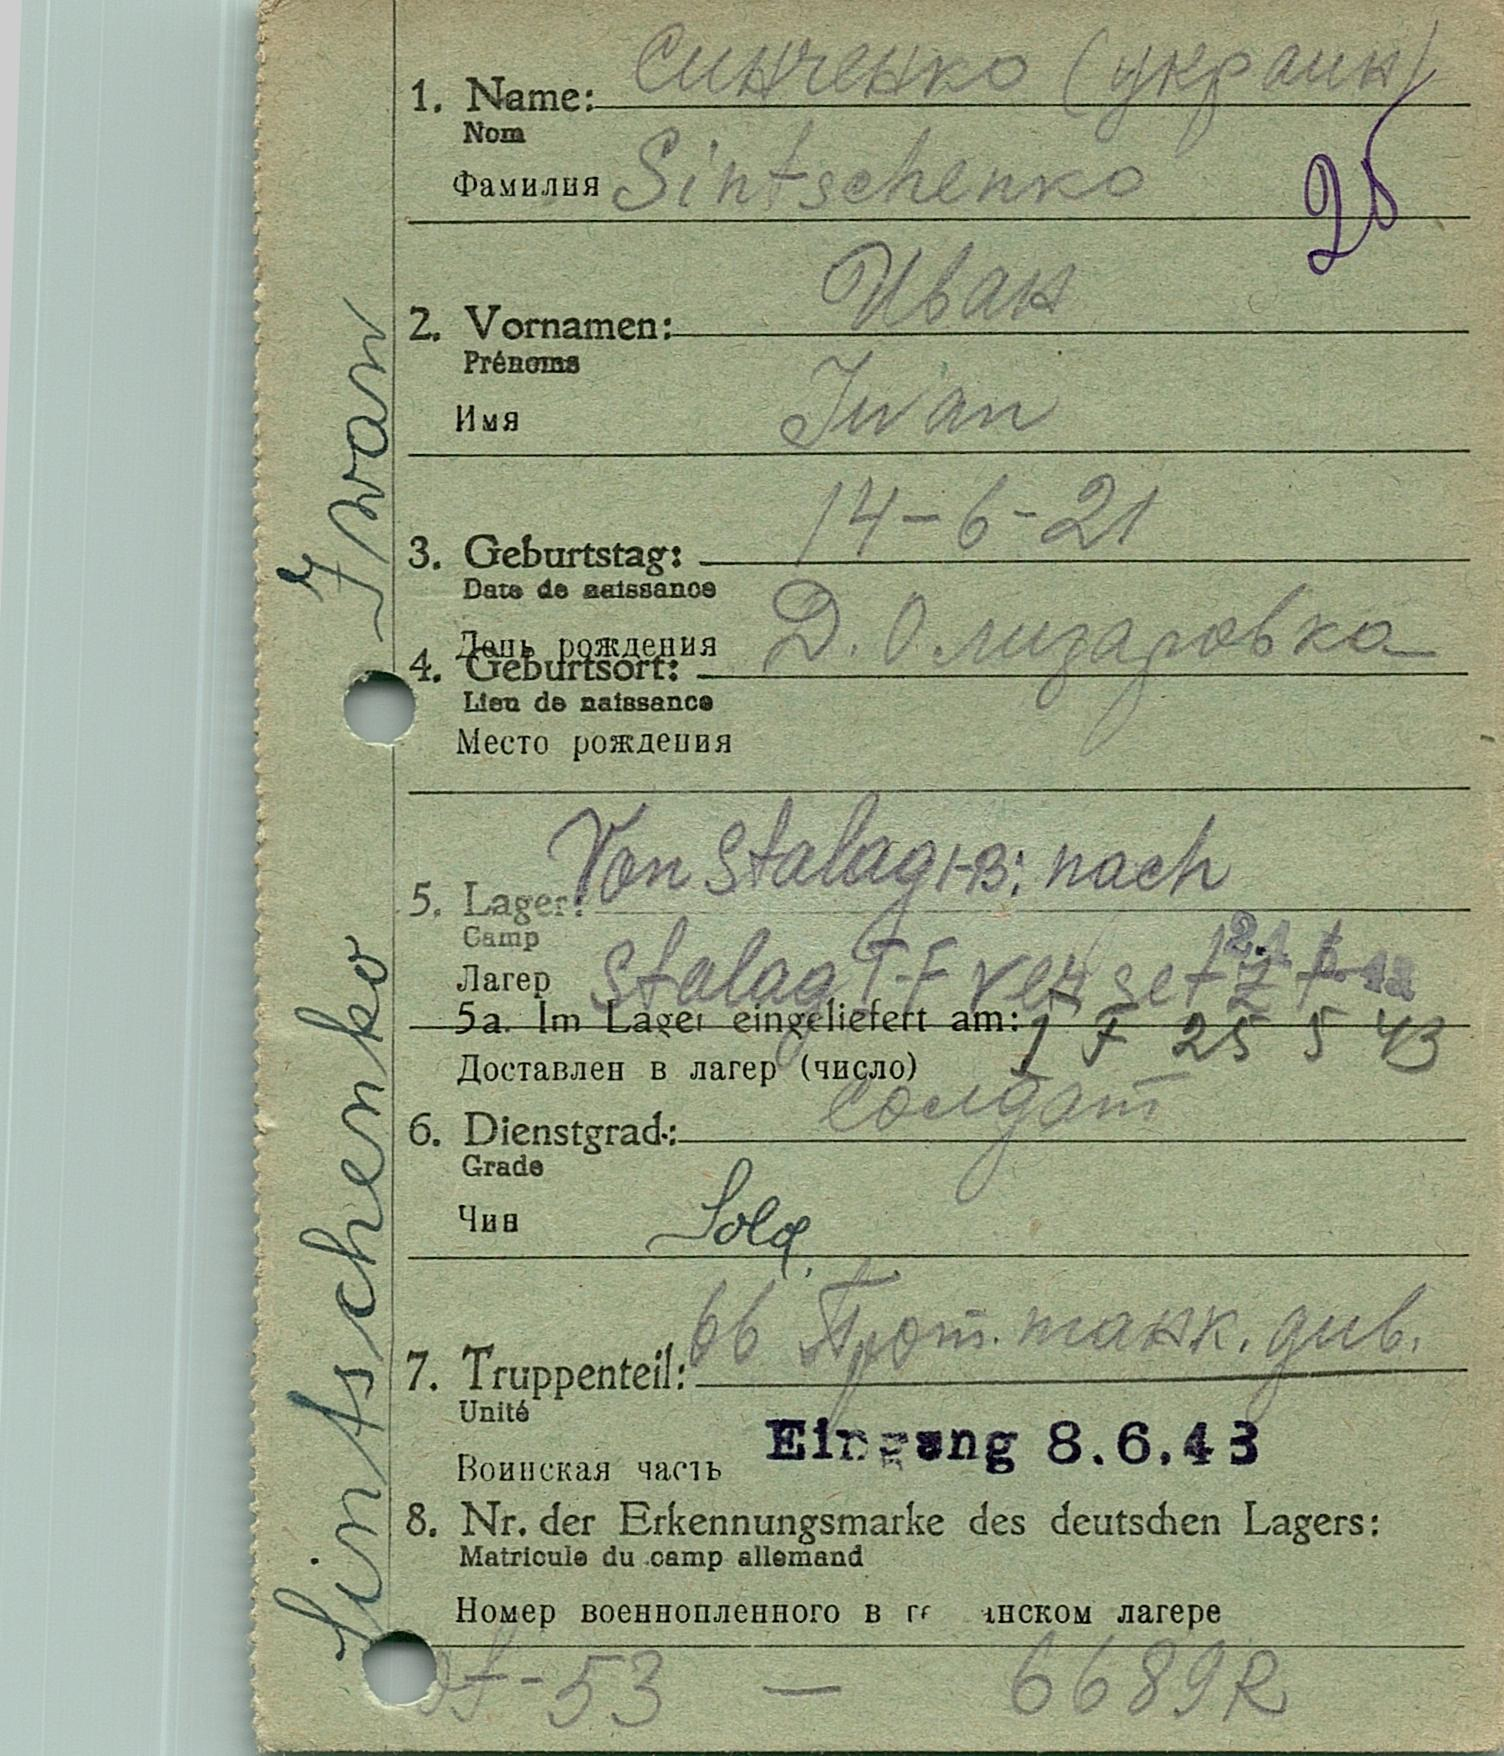 Синченко (украин)
1. Name:
Nom
Фамилия Sintschenko
25
Иван
2. Vornamen:
Prénoms
Имя Iwan
14-6-21
3. Geburtstag:
Date de naissance
День рождения
Д. Олизаровка
4. Geburtsort:
Lieu de naissance
Место рождения
Von Stalag I-B: nach
5. Lager:
Camp
Лагер Stalag I-F versetzt
5a. Im Lager eingeliefert am: I F 25 5 43
Доставлен в лагер (число)
солдат
6. Dienstgrad:
Grade
Чин Sold.
66 Прот. танк. див.
7. Truppenteil:
Unité
Eingang 8.6.43
Воинская часть
8. Nr. der Erkennungsmarke des deutschen Lagers:
Matricule du camp allemand
Номер военнопленного в ге анском лагере
53 — 6689R
Sintschenko Iwan